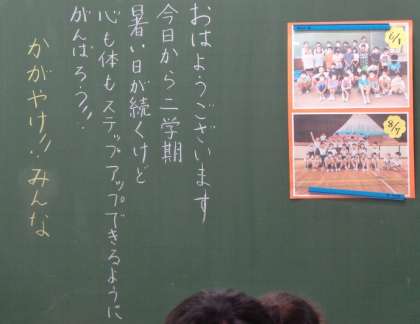 おはようございます
今日から二学期
暑い日が続くけど
心も体もステップアップできるように
がんばろう!!
かがやけ!!みんな
6/1
8/7